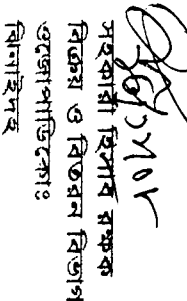 সহকারী হিসাব রক্ষক
বিক্রয় ও বিতরন বিভাগ
ওজোপাডিকোঃ
ঝিনাইদহ